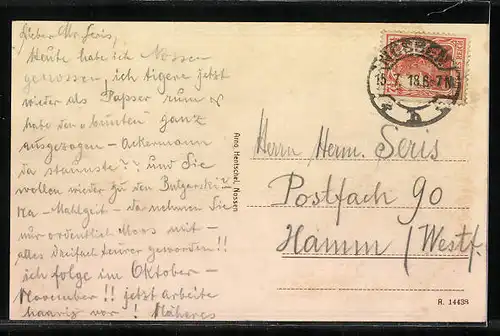 Lieber Hr. Seris,
Heute habe ich Nossen
genossen, ich tigere jetzt
wieder als Papser rum &
habe den "bunten" ganz
ausgezogen - Ackermann
da staunste?? und Sie
wollen wieder zu den Bulgarski?
Na - Mahlzeit - da nehmen Sie
nur ordentlich Moos mit -
alles dreifach teurer geworden!!
ich folge im Oktober -
November!! jetzt arbeite
vor! Näheres
Arno Hentschel, Nossen
NOSSEN
15.7.18.6-7N.
b
Herrn Herm. Seris
Postfach 90
Hamm (Westf.
R. 14438